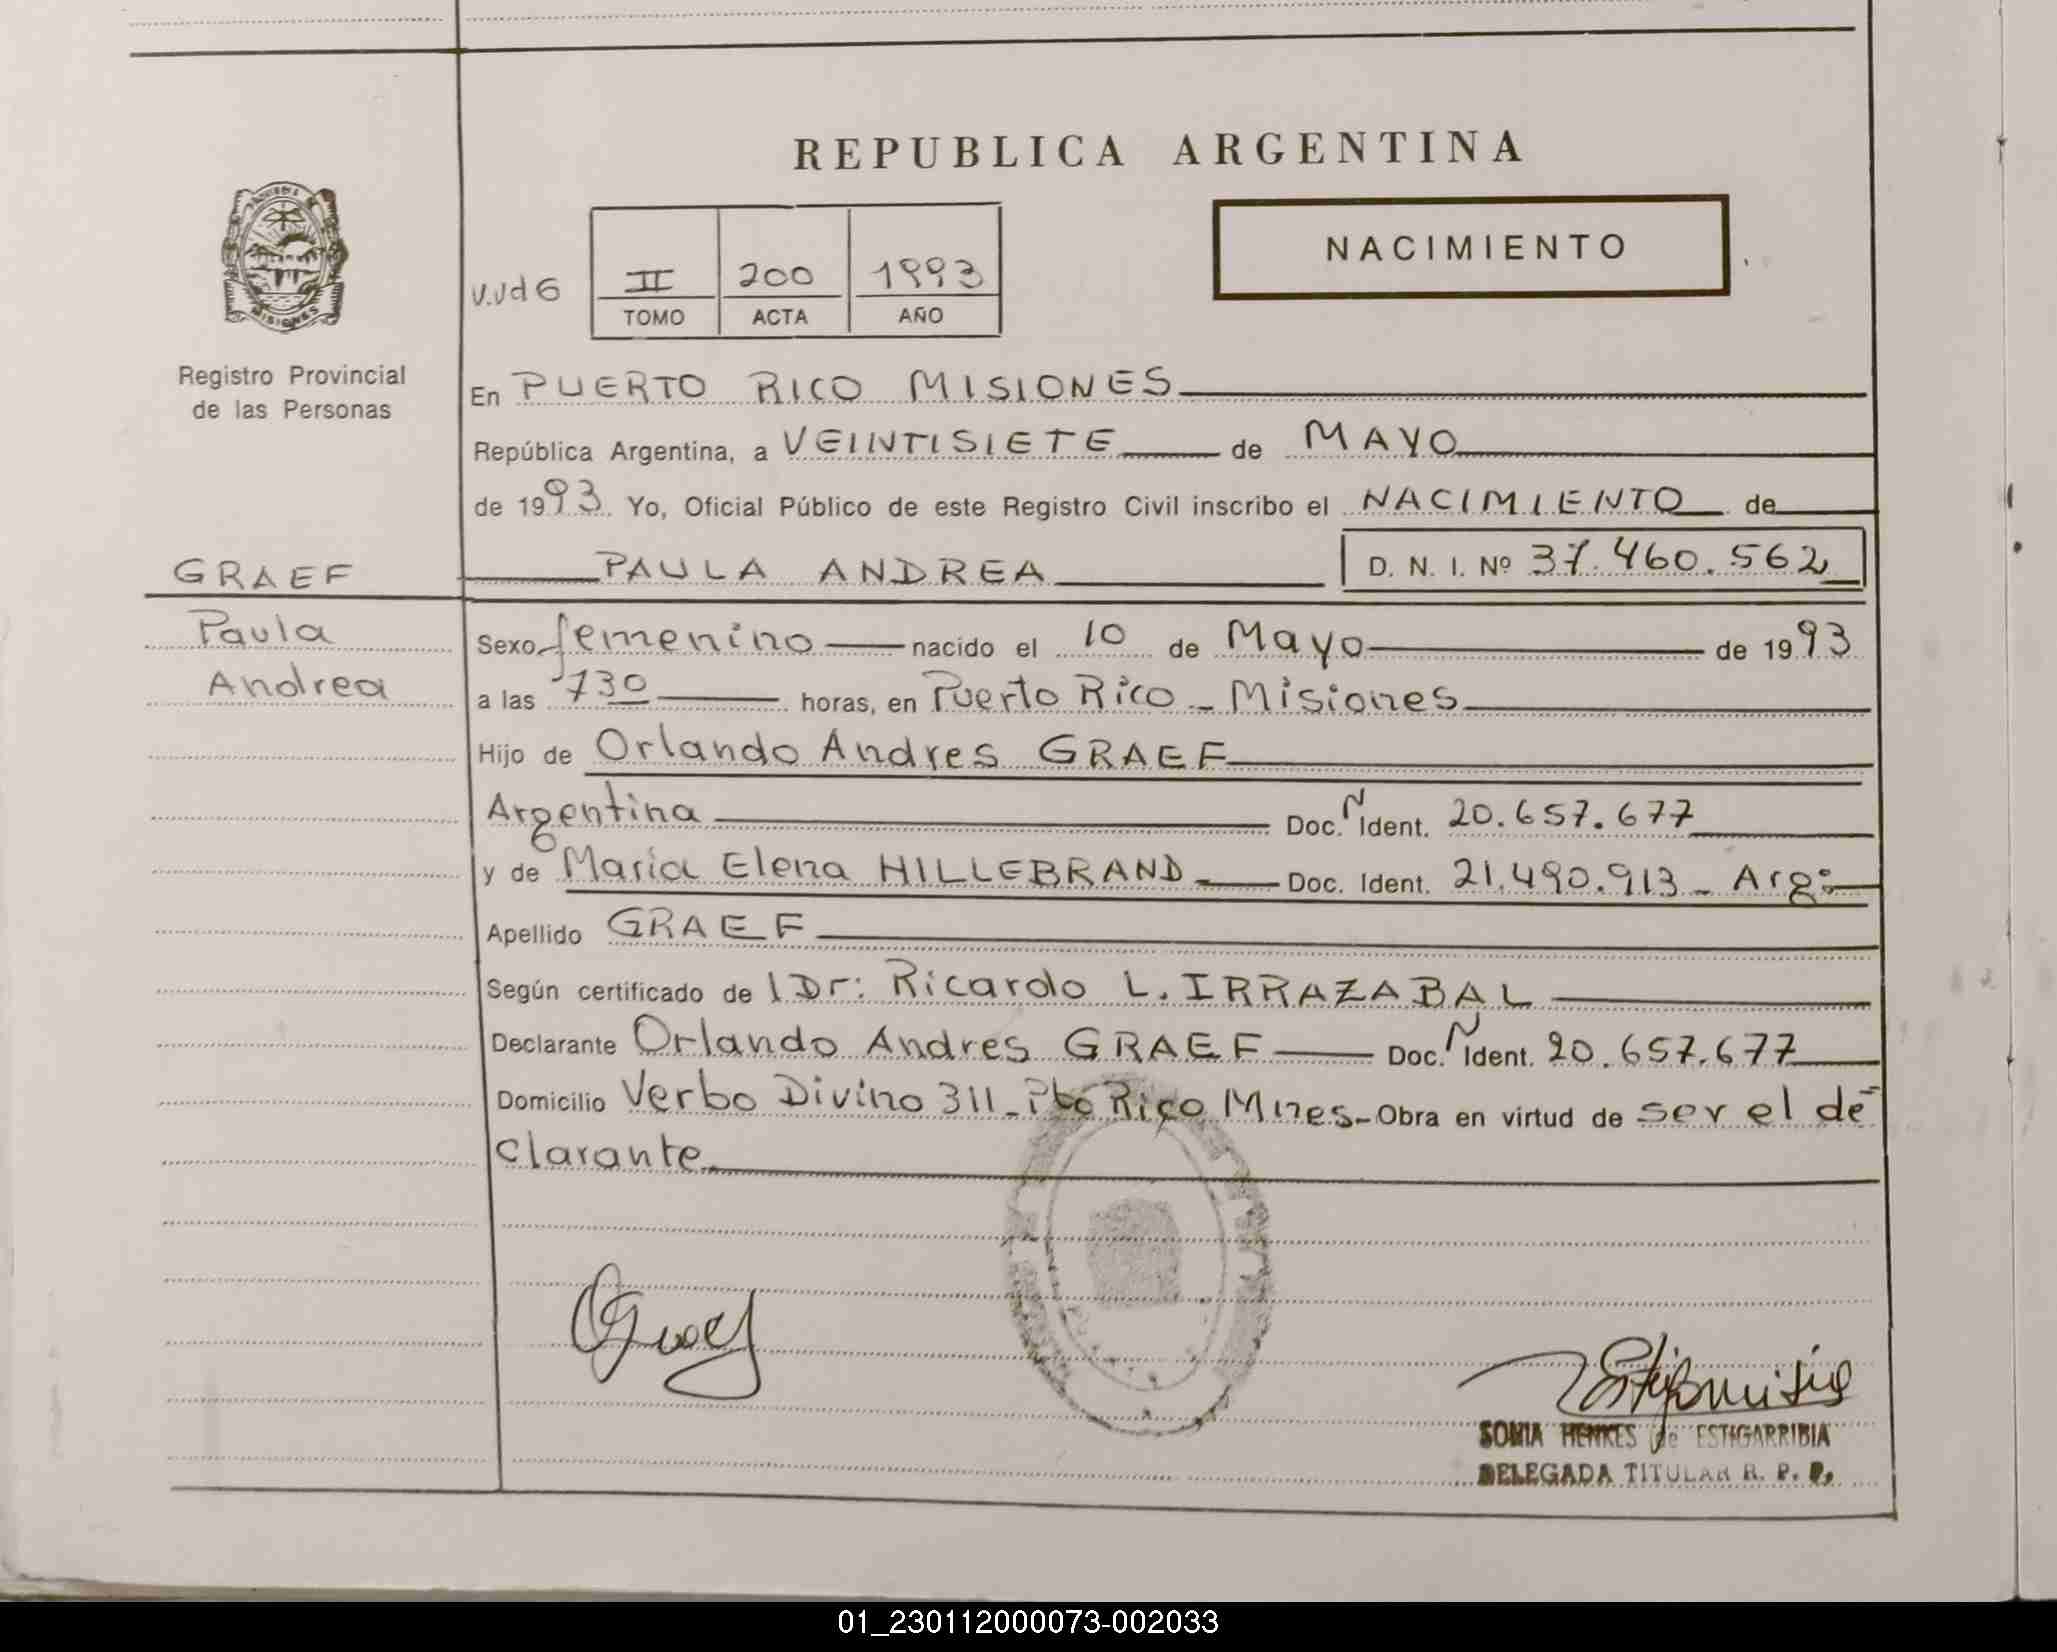 REPUBLICA ARGENTINA
NACIMIENTO
II 200 1993
TOMO ACTA AÑO
Registro Provincial
de las Personas
MISIONES
En PUERTO RICO MISIONES
República Argentina, a VEINTISIETE de MAYO
de 1993. Yo, Oficial Público de este Registro Civil inscribo el NACIMIENTO de
GRAEF
PAULA ANDREA D. N. I. Nº 37.460.562
Paula
Andrea
Sexo femenino nacido el 10 de Mayo de 1993
a las 730 horas, en Puerto Rico - Misiones
Hijo de Orlando Andres GRAEF
Argentina Doc. N Ident. 20.657.677
y de Maria Elena HILLEBRAND Doc. Ident. 21.490.913 - Arg:
Apellido GRAEF
Según certificado de l Dr: Ricardo L. IRRAZABAL
Declarante Orlando Andres GRAEF Doc. N Ident. 20.657.677
Domicilio Verbo Divino 311 - Pto Rico Mnes - Obra en virtud de ser el de
clarante
SONIA HENKES de ESTIGARRIBIA
DELEGADA TITULAR R. P. P.
01_230112000073-002033